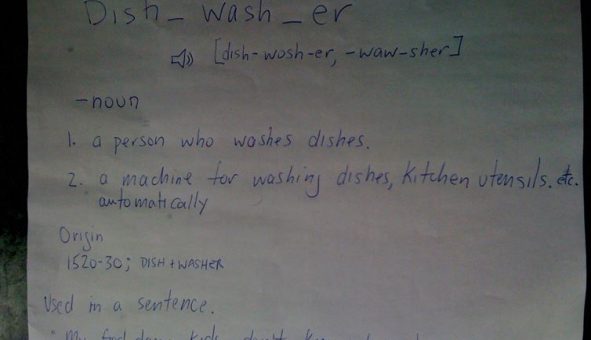 Dish_ wash_er
[dish-wosh-er, -waw-sher]
-noun
1. a person who washes dishes.
2. a machine for washing dishes, kitchen utensils. etc.
automatically
Origin
1520-30; DISH + WASHER
Used in a sentence.
"My